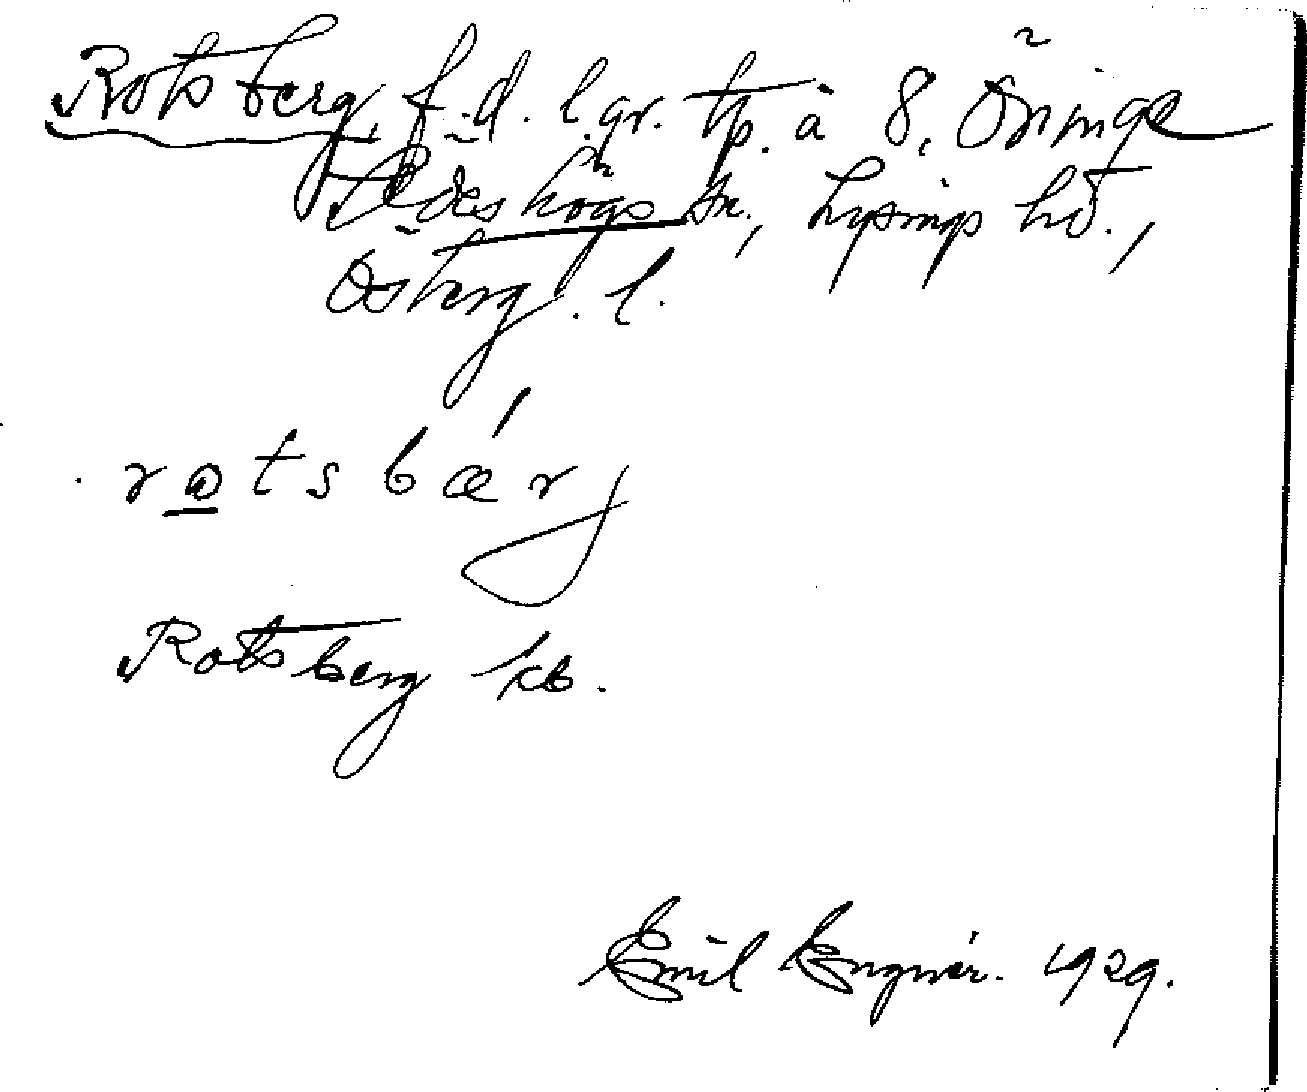 Rotsberg, f.d. l.gr. tp. å S. Öninge
Ödeshögs sn., Lysings hd.,
Östberg. l.
rɷtsbærj
Rotsberg kb.
Emil Engnér. 1929.